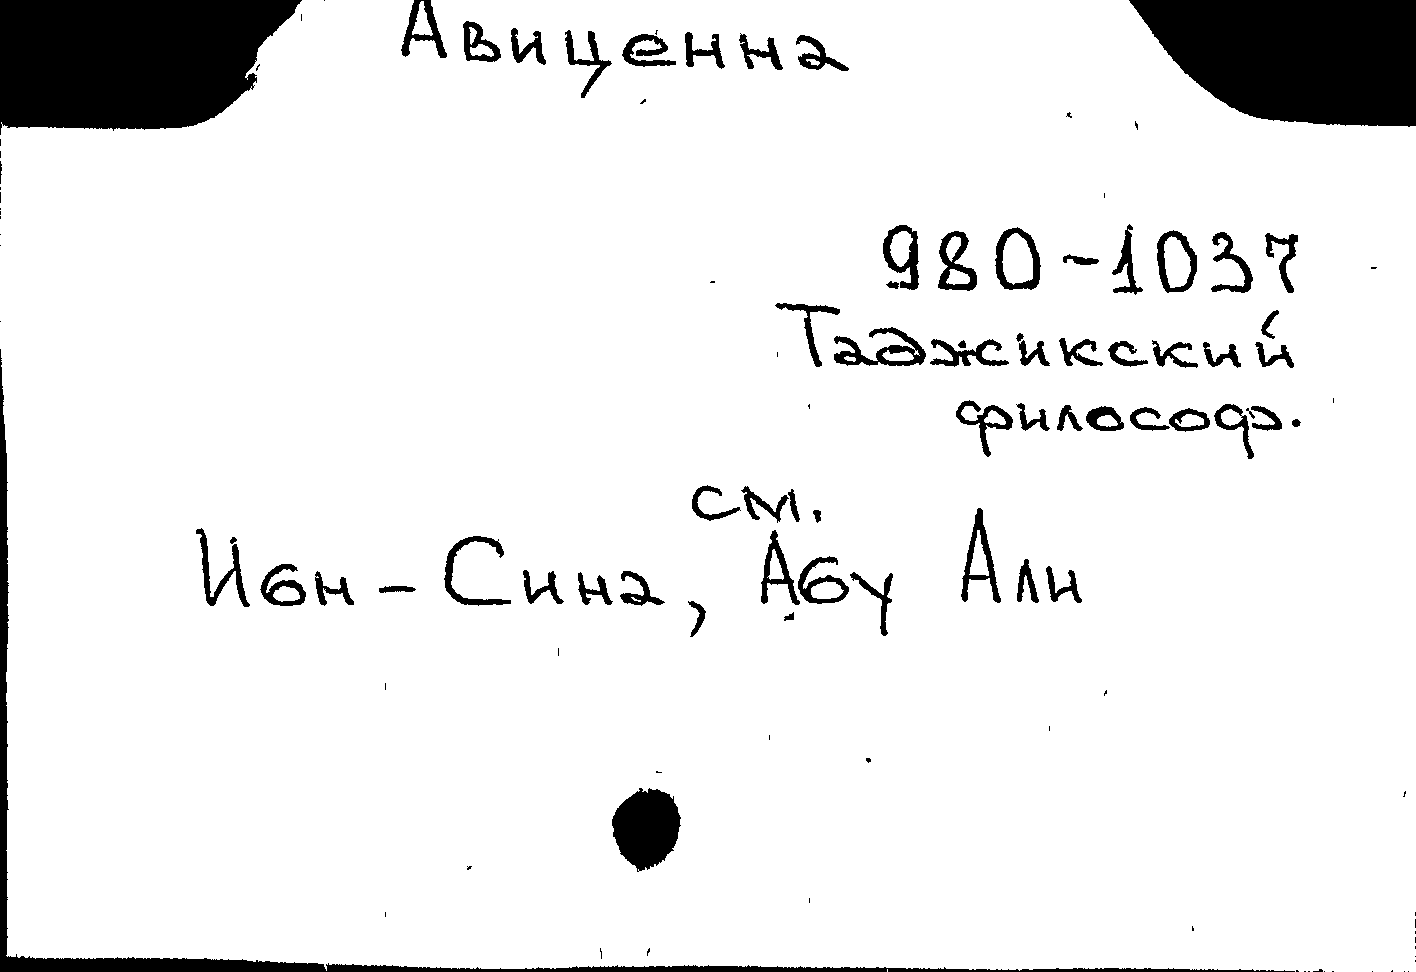 Авиценна
980-1037
Таджикский
философ.
см.
Ибн-Сина, Абу Али